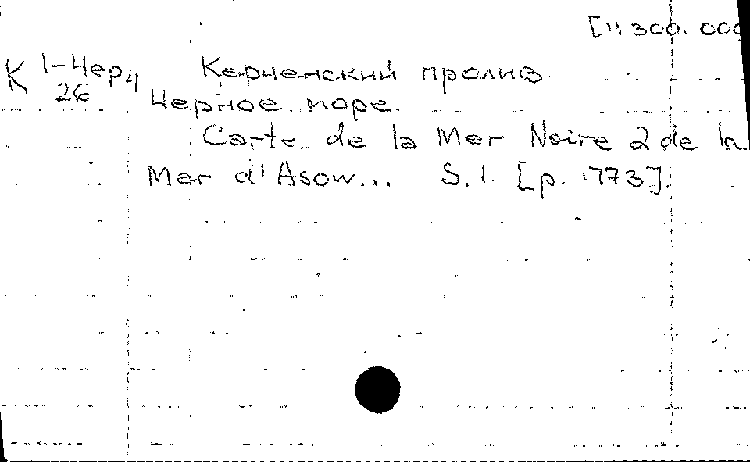 [1:300.000
К 1-Чер4 Керченский пролив
26 Черное море.
Carte de la Mer Noire & de la
Mer d'Asow... S.l. [p. 1773].